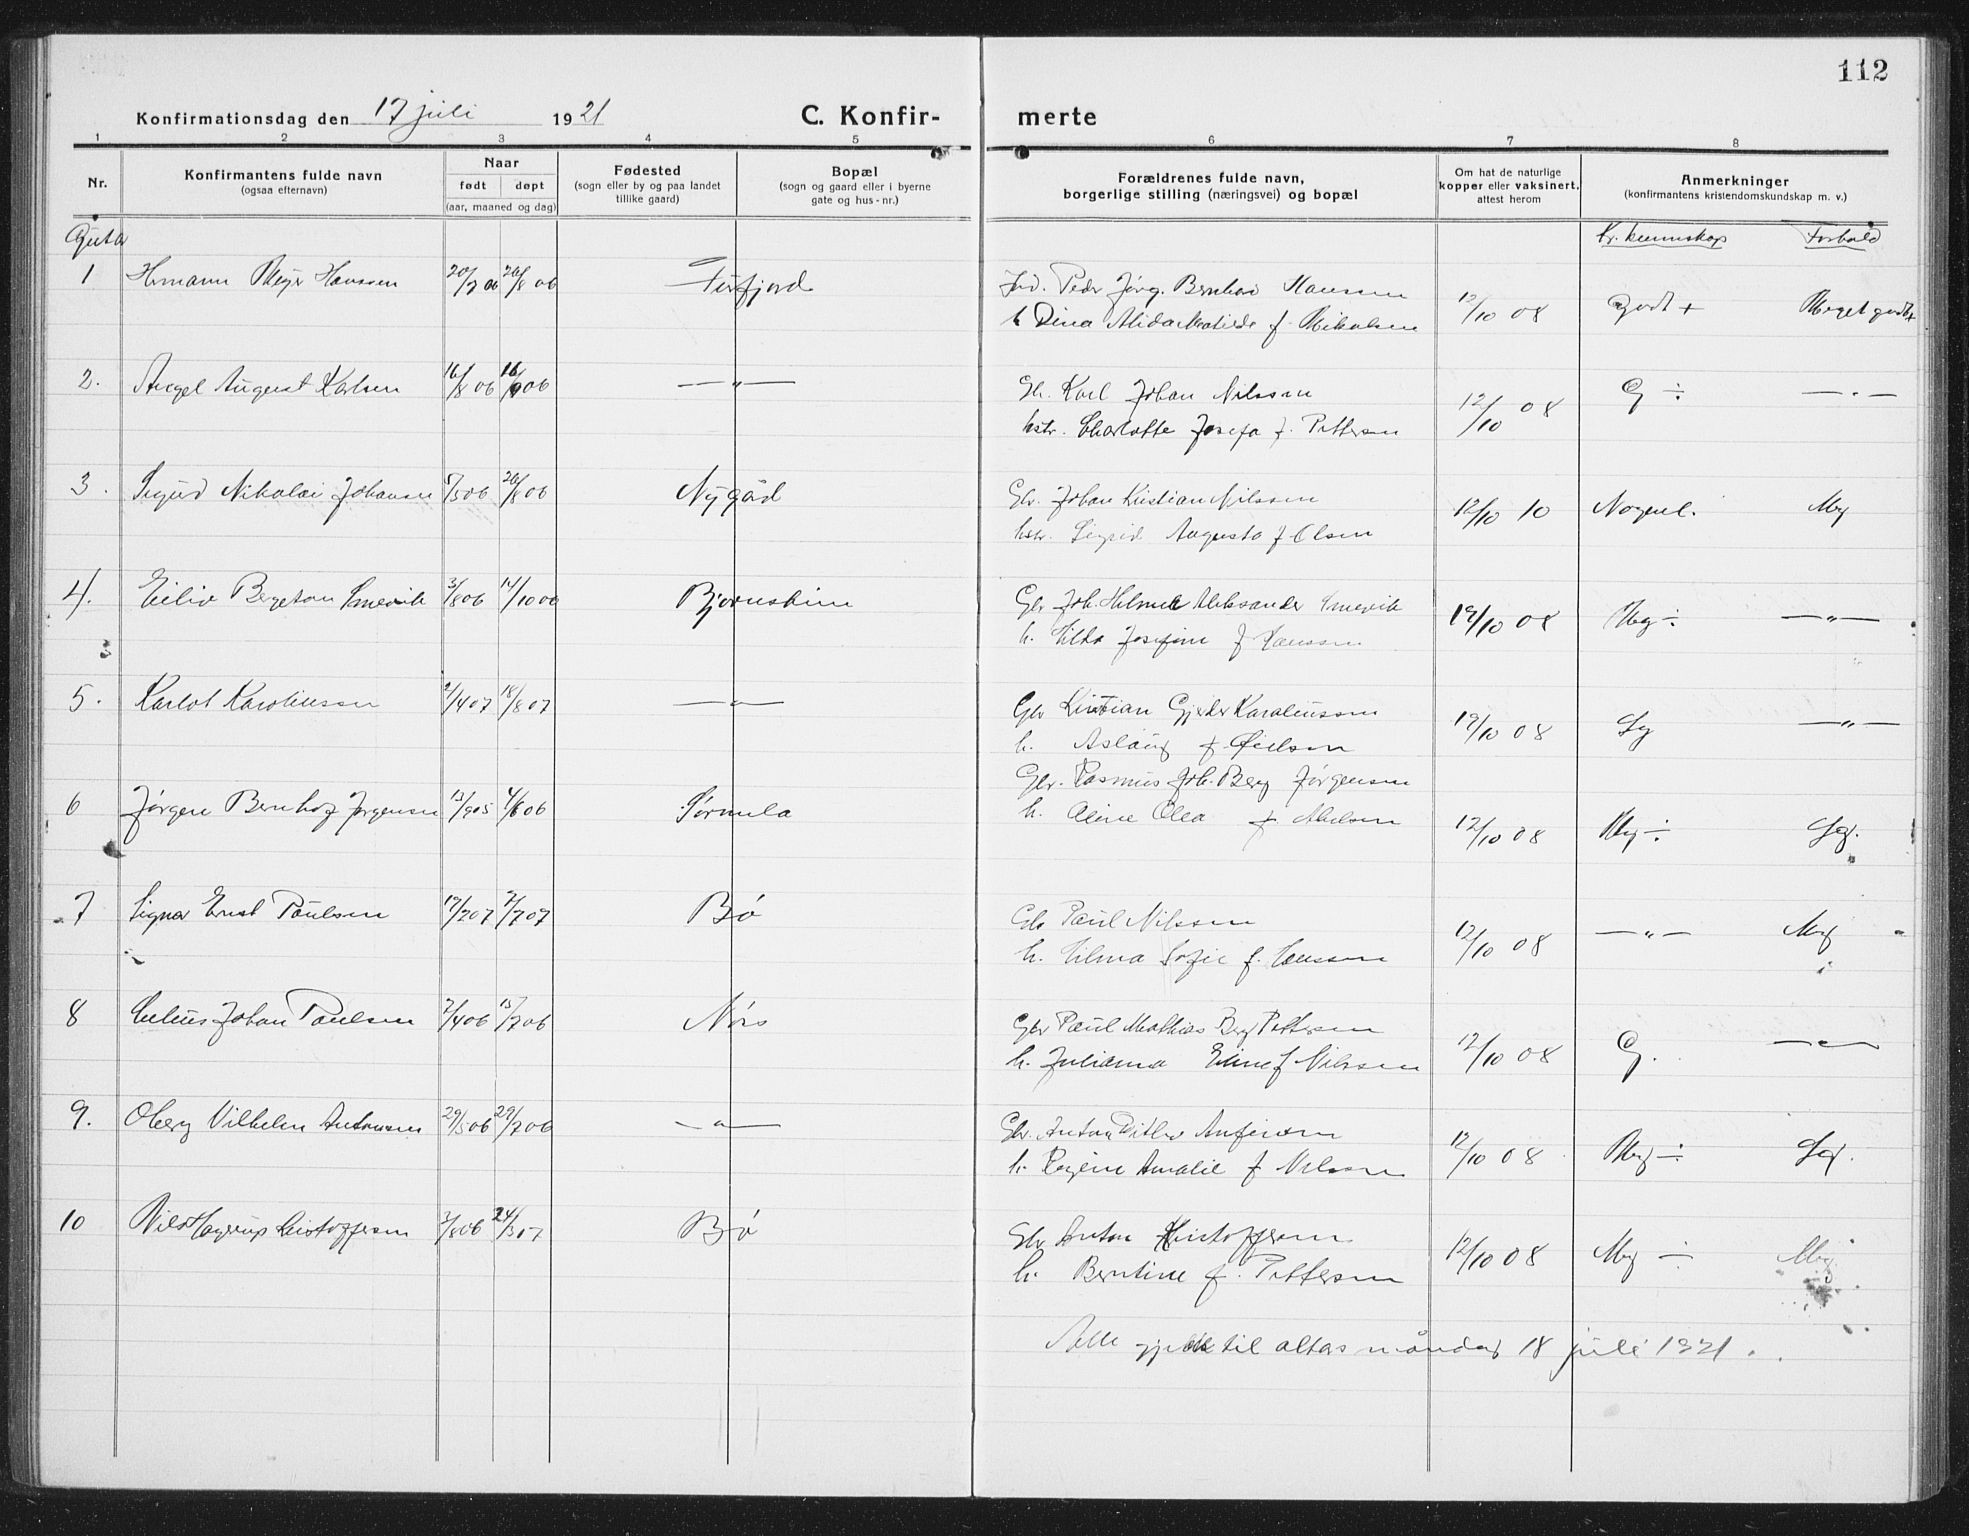 112
Konfirmationsdag den 17 juli 1921
C. Konfirmerte
1 2 3 4 5 6 7 8
Nr.
Konfirmantens fulde navn
(ogsaa efternavn)
Naar
født døpt
(aar, maaned og dag)
Fødested
(sogn eller by og paa landet
tillike gaard)
Bopæl
(sogn og gaard eller i byerne
gate og hus-nr.)
Forældrenes fulde navn,
borgerlige stilling (næringsvei) og bopæl
Om hat de naturlige
kopper eller vaksinert,
attest herom
Anmerkninger
(konfirmantens kristendomskundskap m. v.)
Gutar
Kr. kunnskap Forhold
1 Hermann Meyer Hanssen 20/7 06 26/8 06 Finfjord
Peder Jørg. Bernhard Hanssen
h Dina Alida Matilde f. Mikalsen
12/10 08 Godt + Meget godt +
2. Aksel August Karlsen 16/8 06 16/9 06 —"—
Gbr. Karl Johan Nilssen
hstr. Charlotte Josefa f. Pettersen
12/10 08 G ÷ —"—
3. Sigurd Nikolai Johansen 5/5 06 26/8 06 Nygård
Gbr. Johan Kristian Nilssen
hstr. Sigrid Augusta f Olsen
12/10 10 Nogenl. Mg
4. Eiliv Bergeton Smevik 3/8 06 14/10 06 Bjørnskinn
Gbr Joh. Hilmar Aleksander Smevik
h. Hilda Josefine f Hanssen
19/10 08 Mg ÷ —"—
5. Karlot Karoliussen 2/4 07 18/8 07 —"—
Gbr Kristian Gjerder Karoliussen
h. Aslaug f.
19/10 08 Sg —"—
6 Jørgen Bernhof Jørgensen 13/9 05 4/6 06 Sørmela
Gbr. Rasmus Joh. Berg Jørgensen
h. Oline Olea f.
12/10 08 Mg ÷ Sg.
7 Signar Ernst Paulsen 17/2 07 7/7 07 Bø
Gbr Paul Nilssen
h. Hilma Sofie f. Hanssen
12/10 08 —"— Mg
8 Julius Johan Paulsen 2/4 06 15/7 06 Nøss
Gbr Paul Mathias Berg Pettersen
h. Julianna Eline f Nilssen
12/10 08 G. —"—
9. Oberg Vilhelm Antonsen 29/5 06 29/7 06 —"—
Gbr. Anton Ditlev
h. Regine Amalie f Nilssen
12/10 08 Mg ÷ Sg.
10 Nils Hagerup Kristoffersen 7/8 06 24/3 07 Bø
Gbr Anton Kristoffersen
h. Berntine f. Pettersen
12/10 08 Mg ÷ Mg
Alle gjekk til altas måndag 18 juli 1921.